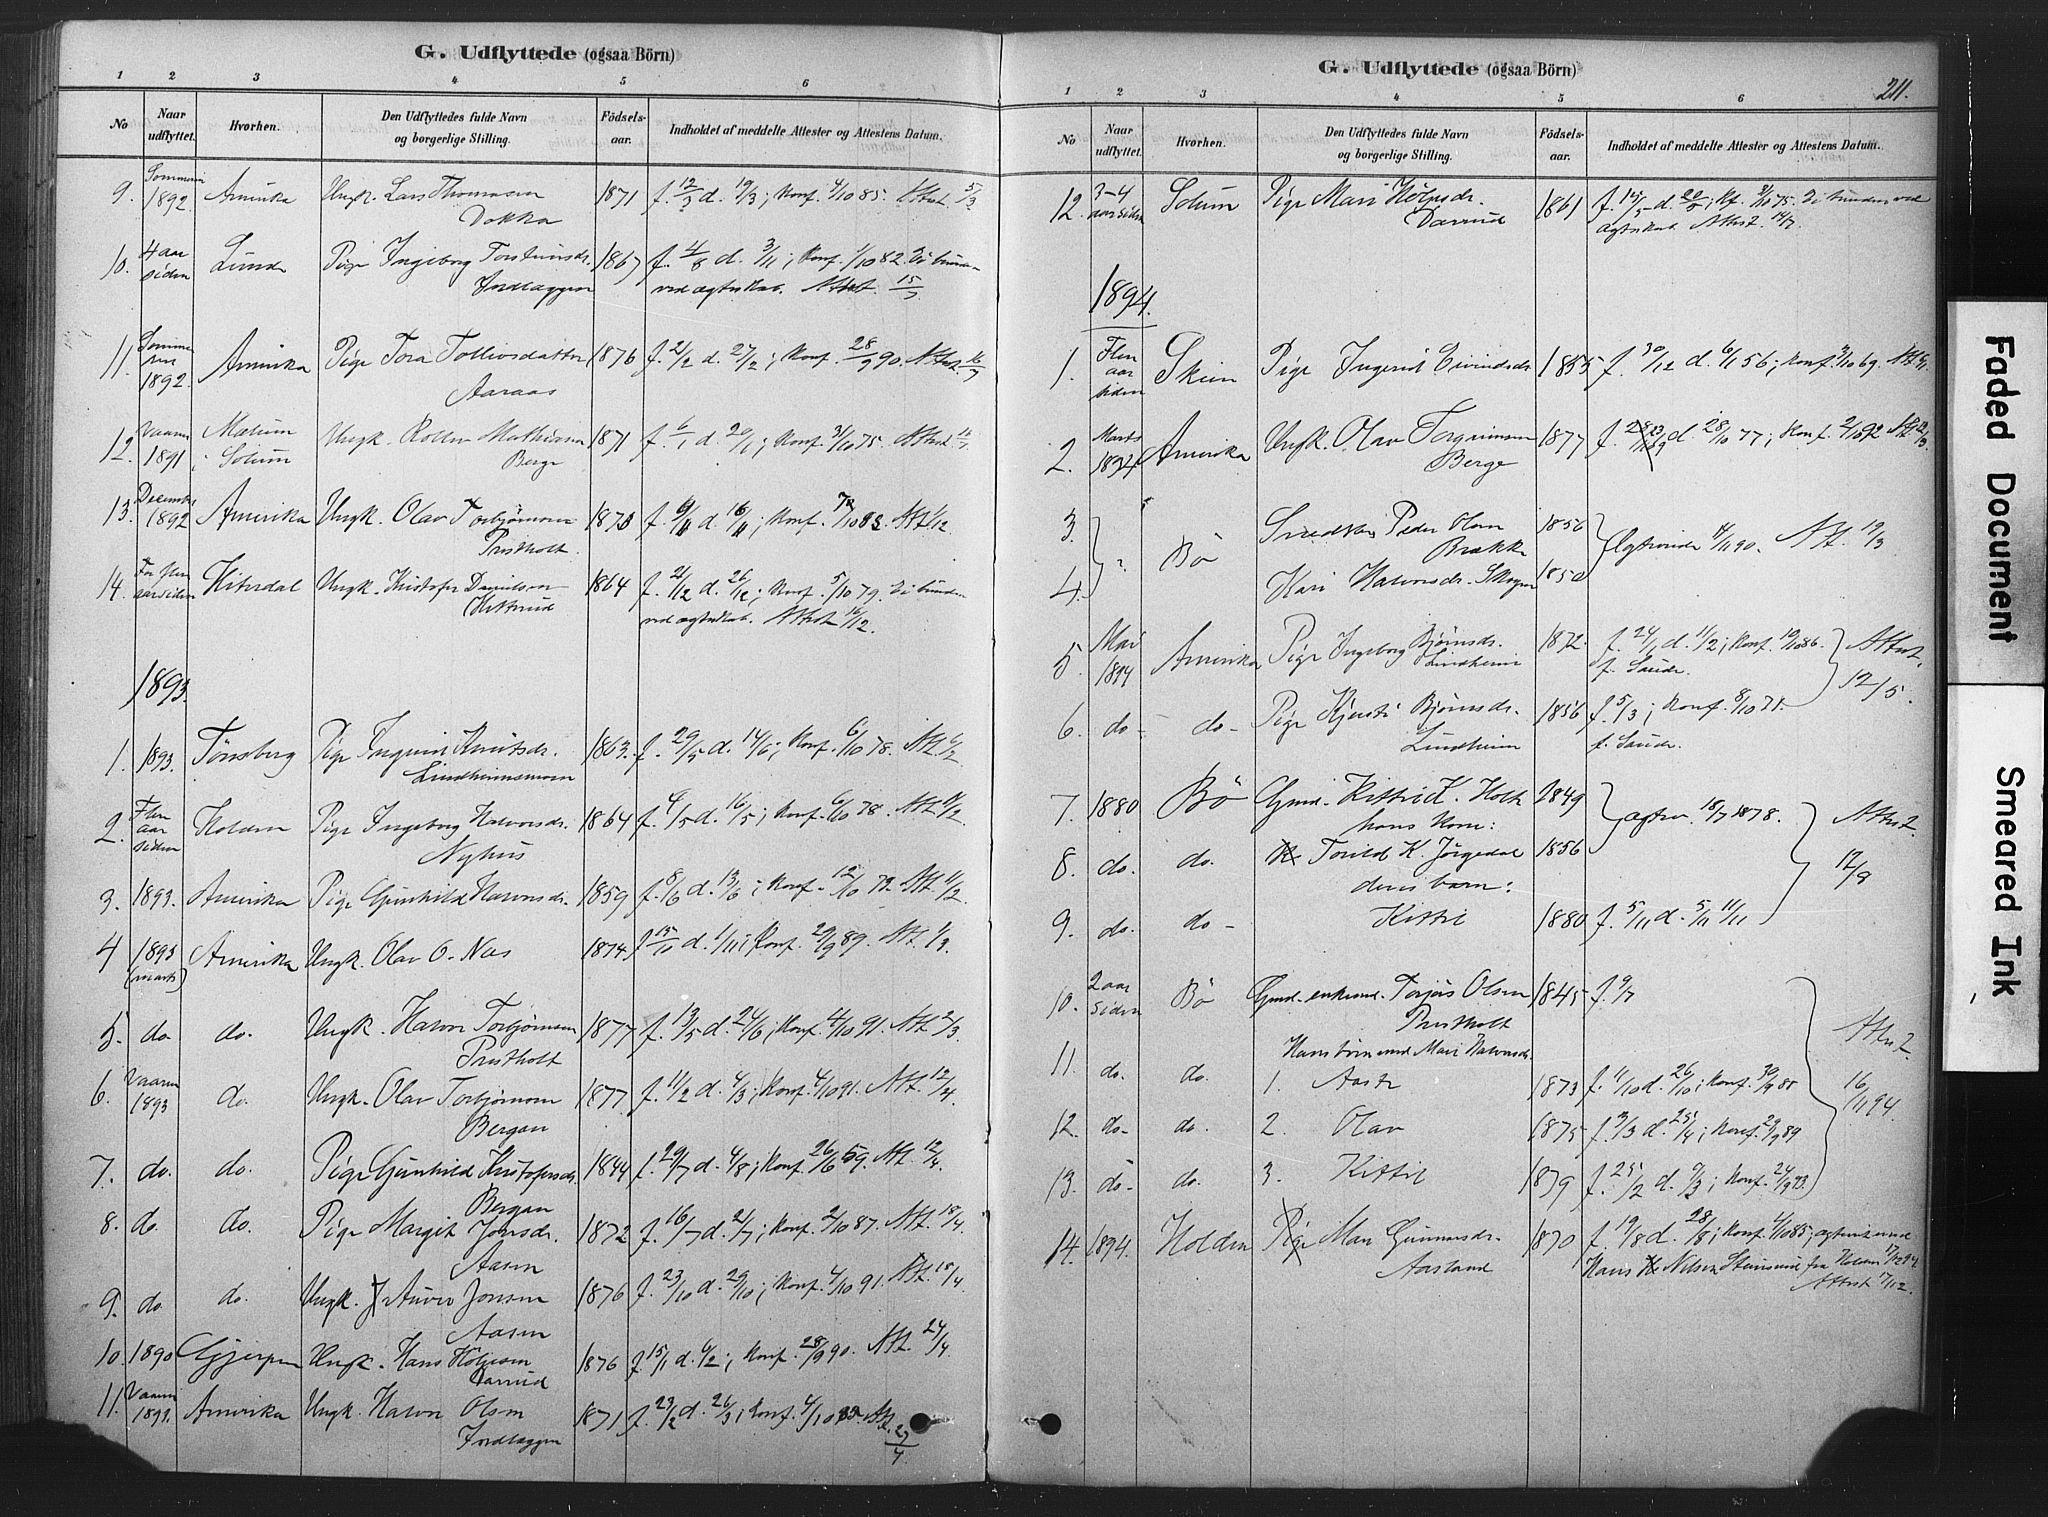 G. Udflyttede (ogsaa Börn)
1 2 3 4 5 6
No Naar udflyttet. Hvorhen. Den Udflyttedes fulde Navn og borgerlige Stilling. Födsels-aar. Indholdet af meddelte Attester og Attestens Datum.
9. Sommeren 1892 Amerika Ungk. Lars Thomasen 1871 f. 12/2 d. 19/3; Konf. 4/10 85. Attest. 5/3
Dokka
10. 4 aar siden Lunde Pige Ingeborg 1867 f. 4/8 d. 3/11; Konf. 1/10 82. Ei bunden
Jordlaggen ved ægteskab. Attest. 15/7
11. Sommeren 1892 Amerika Pige Tora Tollivsdatter 1876 f. 2/2 d. 27/2; Konf. 28/9 90. Attest.
Aaraas
12. Vaaren 1891 Mælum i Solum Ungk. Mathiasen 1871 f. 6/1 d. 20/1; Konf. 3/10 75. Attest
Berge
13. December 1892 Amerika Ungk. Olav Torbjørnsen 1873 f. 9/11 d. 16/11; Konf. Att. 1/12
Prestholt.
14. For flere aar siden Hiterdal Ungk. Kristofer Danielsen 1864 f. 2/12 d. 26/12; Konf. 5/10 79. Ei bunden
Kittrud ved ægteskab. Attest 16/12.
1893.
1. 1893. Tönsberg Pige Ingrid Knutsdr. 1863. f. 29/5 d. 14/6; Konf. 6/10 78. Att. 6/2
Lindheimsmoen
2. Flere aar siden Holden Pige Ingeborg Halvorsdr. 1864 f. 4/5 d. 16/5; Konf. 6/10 78. Att. 8/2
Nyhus
3. 1893. Amerika Pige Gunhild Halvorsdr. 1859 f. 8/6 d. 13/6; Konf. 12/10 72. Att. 11/2
4 1893 (marts) Amerika Ungk. Olav O. Næs 1874. f. 15/10 d. 1/11; Konf. 29/9 89. Att. 1/3.
5. do do. Ungk. Halvor Torbjørnsen 1877 f. 13/5 d. 24/6; Konf. 4/10 91. Att. 2/3.
Prestholt
6. Vaaren 1893 do. Ungk. Olav Torbjörnsen 1877. f. 11/2 d. 4/3; Konf. 4/10 91. Att. 12/4.
Bergan
7. do. do. Pige Gunhild Kristofersdr. 1844 f. 29/7 d. 4/8; Konf. 26/6 59. Att. 12/4.
Bergan
8. do. do. Pige Margit Jonsdr. 1872 f. 16/7 d. 21/7; Konf. 2/10 87. Att. 18/4.
Aasen
9. do do. Ungk. Auver Jonsen 1876 f. 23/10 d. 29/10; Konf. 4/10 91. Att. 18/4.
Aasen
10. 1890 Gjerpen Ungk. Hans Höljesen 1876 f. 15/1 d. 6/2; Konf. 28/9 90. Att. 24/4.
Darrud
11. Vaaren 1893. Amerika Ungk. Halvor Olsen 1871 f. 23/2 d. 26/3; Konf. 4/10 85. Att. 27/4
Jordlaggen
G. Udflyttede (ogsaa Börn)
211.
1 2 3 4 5 6
No Naar udflyttet. Hvorhen. Den Udflyttedes fulde Navn og borgerlige Stilling. Födsels-aar. Indholdet af meddelte Attester og Attestens Datum.
12. 3-4 aar siden Solum Pige Mari Höljesdr. 1861 f. 15/5 d. 20/5; Kf. 3/10 75. Ei bunden ved
Darrud ægteskab Attest. 14/7.
1894.
1. Flere aar siden Skien Pige Ingerid Eivindsdr. 1855 f. 30/12 d. 6/1 56; Konf. 3/10 69.
2. Marts 1894 Amerika Ungk. Olav Torgrimsen 1877 f. 23/9 d. 28/10 77; Konf. 2/10 92 Att.
Berge
3. Bö Smedsv. Peder Olsen 1856 Ægteviede 14/11 90. Att. 19/3
Brække
4. Kari Halvorsdr. Skogen 1850
5. Mai 1894 Amerika Pige Ingeborg Björnsdr. 1872. f. 24/1 d. 11/2; Konf. 10/10 86. Attest. 12/5.
Lindheim f. Saude.
6. do- do- Pige Kjersti Björnsdr. 1856 f. 5/3; Konf. 8/10 71.
Lindheim f. Saude.
7. 1880 Bö Gmd. Kittil K. Holt 1849 ægtev. 18/7 1878. Attest. 17/8
hans Kone:
8. do. do. Torild K. Jørgedal 1856
deres barn:
9. do. do- Kittil 1880 f. 5/11 d. 5/11 11/11
10. 2 aar siden Bö Gmd.-enkemd. Torjus Olsen 1845 f. 9/7
Prestholt Attest. 16/11 94.
Hans börn med Mari Halvorsdr.
11. do. do. 1. Aaste 1873 f. 11/10 d. 26/10; Konf. 30/9 88
12. do- do. 2. Olav 1875 f. 3/3 d. 25/4; Konf. 29/9 89
13. do- do. 3. Kittil 1879 f. 25/2 d. 9/3; Konf. 24/9 93.
14. 1894. Holden Pige Mari Gunnarsdr. 1870 f. 19/8 d. 28/8; Konf. 4/10 85; ægteviet med
Aarland Hans Nilsen fra Holden
Attest 17/12.
Faded Document
Smeared Ink